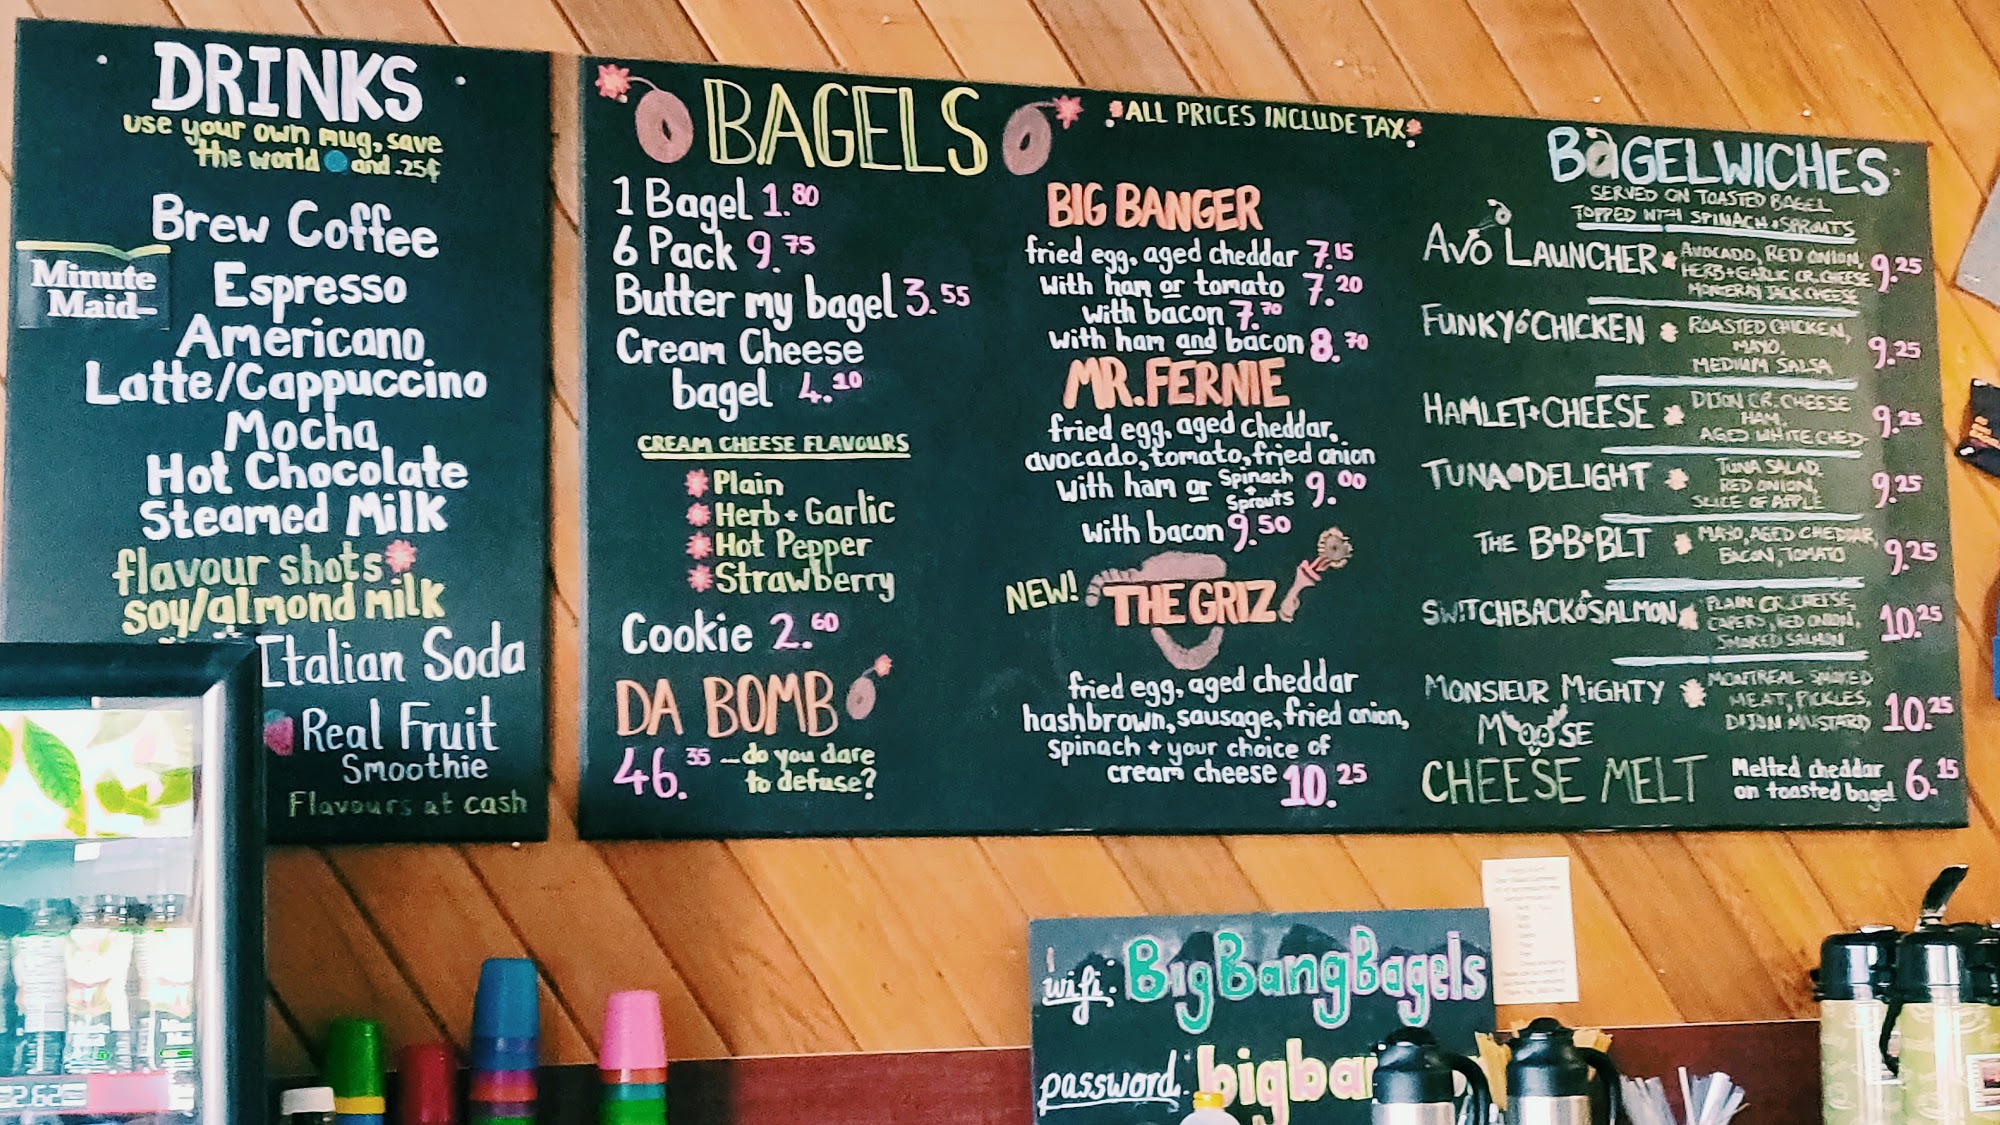 DRINKS
use your own mug, save
the world and .25¢
Brew Coffee
Minute
Maid
Espresso
Americano
Latte/Cappuccino
Mocha
Hot Chocolate
Steamed Milk
flavour shots
soy/almond milk
Italian Soda
Real Fruit
Smoothie
Flavours at cash
BAGELS
ALL PRICES INCLUDE TAX
1 Bagel 1.80
6 Pack 9.75
Butter my bagel 3.55
Cream Cheese
bagel 4.20
CREAM CHEESE FLAVOURS
Plain
Herb + Garlic
Hot Pepper
Strawberry
Cookie 2.60
DA BOMB
46.35 ...do you dare
to defuse?
BIG BANGER
fried egg, aged cheddar 7.15
with ham or tomato 7.20
with bacon 7.70
with ham and bacon 8.70
MR. FERNIE
fried egg, aged cheddar,
avocado, tomato, fried onion
with ham or Spinach + Sprouts 9.00
with bacon 9.50
NEW! THE GRIZ
fried egg, aged cheddar
hashbrown, sausage, fried onion,
spinach + your choice of
cream cheese 10.25
BAGELWICHES
SERVED ON TOASTED BAGEL
TOPPED WITH SPINACH + SPROUTS
AVO LAUNCHER AVOCADO, RED ONION,
HERB + GARLIC CR. CHEESE 9.25
MONTERAY JACK CHEESE
FUNKY CHICKEN ROASTED CHICKEN,
MAYO, 9.25
MEDIUM SALSA
HAMLET + CHEESE DIJON CR. CHEESE
HAM, 9.25
AGED WHITE CHED
TUNA DELIGHT TUNA SALAD,
RED ONION, 9.25
SLICE OF APPLE
THE B•B•BLT MAYO, AGED CHEDDAR,
BACON, TOMATO 9.25
SWITCHBACK SALMON PLAIN CR. CHEESE,
CAPERS, RED ONION, 10.25
SMOKED SALMON
MONSIEUR MIGHTY MONTREAL SMOKED
MEAT, PICKLES, 10.25
MOOSE DIJON MUSTARD
CHEESE MELT Melted cheddar
on toasted bagel 6.15
wifi: BigBangBagels
password: bigba
2.62